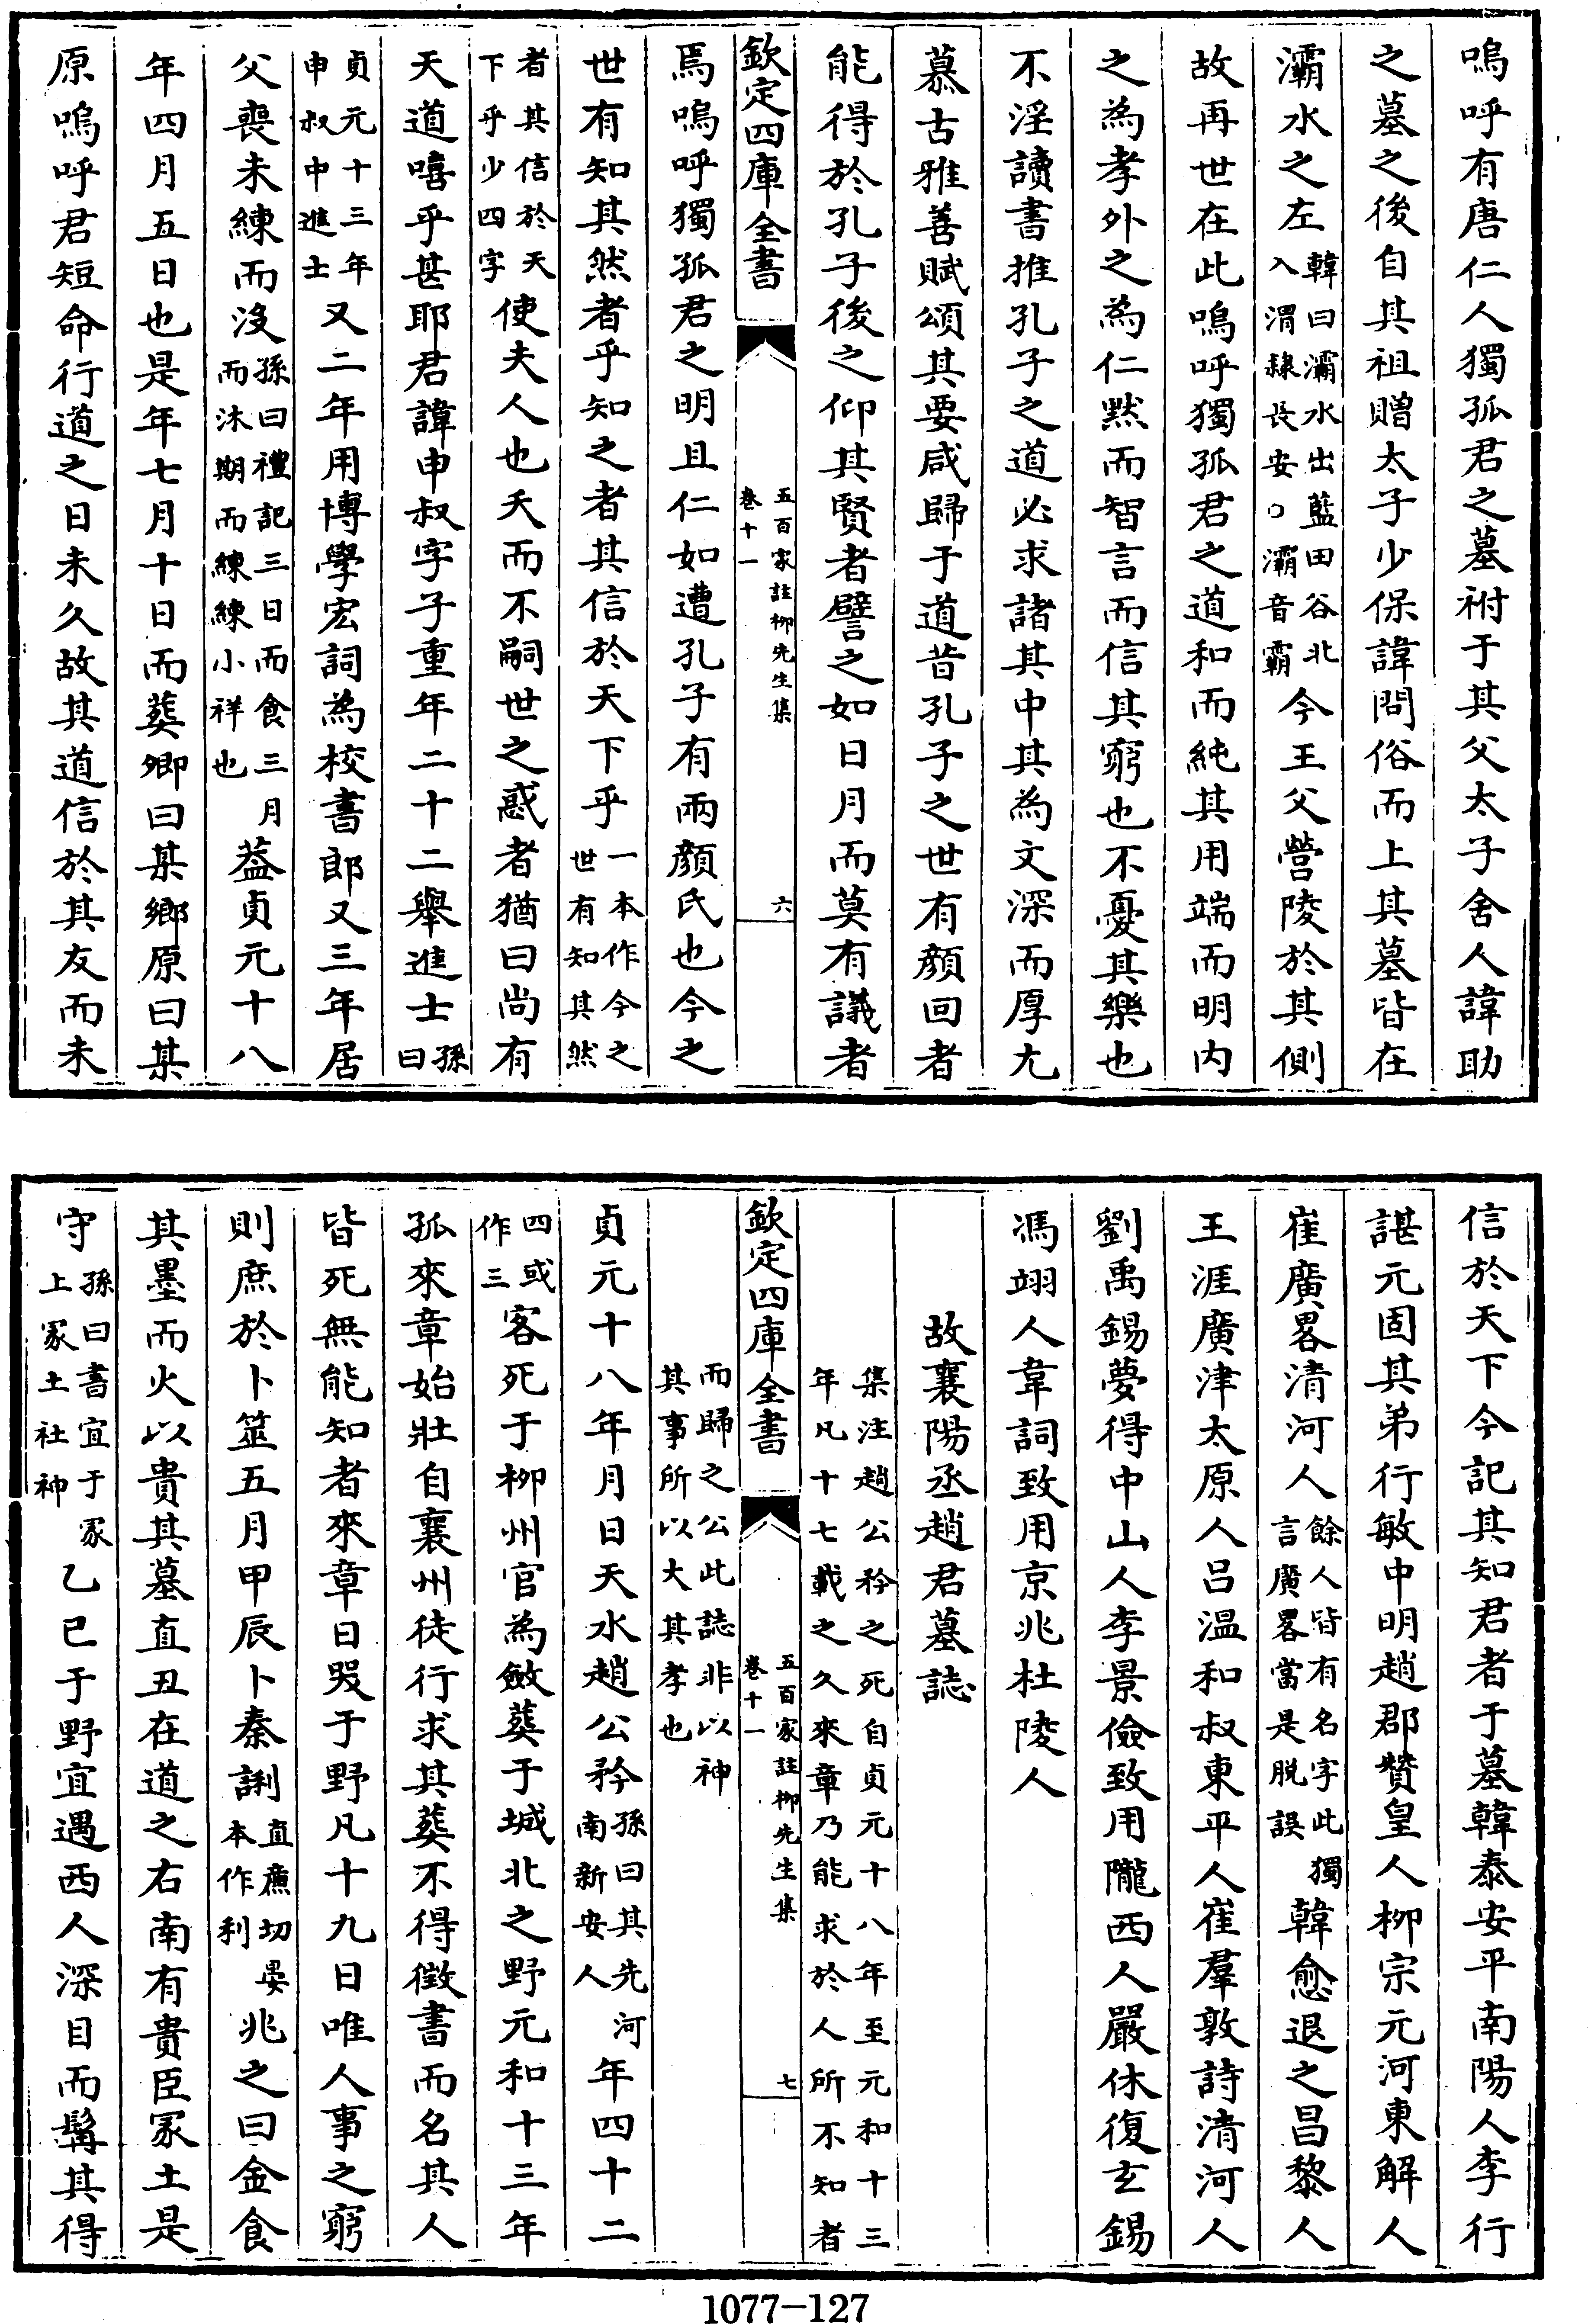 嗚呼有唐仁人獨孤君之墓祔于其父太子舍人諱助
之墓之後自其祖贈太子少保諱問俗而上其墓皆在
灞水之左韓曰灞水出藍田谷北入渭隸長安○灞音霸今王父營陵於其側
故再世在此嗚呼獨孤君之道和而純其用端而明内
之為孝外之為仁默而智言而信其窮也不憂其樂也
不淫讀書推孔子之道必求諸其中其為文深而厚尤
慕古雅善賦頌其要咸歸于道昔孔子之世有顔回者
能得於孔子後之仰其賢者譬之如日月而莫有議者
欽定四庫全書
五百家註柳先生集
卷十一
六
焉嗚呼獨孤君之明且仁如遭孔子有兩顔氏也今之
世有知其然者乎知之者其信於天下乎一本作今之世有知其然
者其信於天下乎少四字使夫人也夭而不嗣世之惑者猶曰尚有
天道嘻乎甚耶君諱申叔字子重年二十二舉進士孫曰
貞元十三年申叔中進士又二年用博學宏詞為校書郎又三年居
父喪未練而没孫曰禮記三日而食三月而沐期而練練小祥也葢貞元十八
年四月五日也是年七月十日而葬鄉曰某鄉原曰某
原嗚呼君短命行道之日未久故其道信於其友而未
信於天下今記其知君者于墓韓泰安平南陽人李行
諶元固其弟行敏中明趙郡贊皇人柳宗元河東解人
崔廣畧清河人餘人皆有名字此獨言廣畧當是脱誤韓愈退之昌黎人
王涯廣津太原人吕温和叔東平人崔羣敦詩清河人
劉禹錫夢得中山人李景儉致用隴西人嚴休復玄錫
馮翊人韋詞致用京兆杜陵人
故襄陽丞趙君墓誌
集注趙公矜之死自貞元十八年至元和十三
年凡十七載之久來章乃能求於人所不知者
欽定四庫全書
五百家註柳先生集
卷十一
七
而歸之公此誌非以神
其事所以大其孝也
貞元十八年月日天水趙公矜孫曰其先河南新安人年四十二
四或作三客死于柳州官為斂葬于城北之野元和十三年
孤來章始壯自襄州徒行求其葬不得徵書而名其人
皆死無能知者來章日哭于野凡十九日唯人事之窮
則庶於卜筮五月甲辰卜秦誗直廉切晏本作利兆之曰金食
其墨而火以貴其墓直丑在道之右南有貴臣冢土是
守孫曰書宜于冢上冢土社神乙巳于野宜遇西人深目而髯其得
1077—127